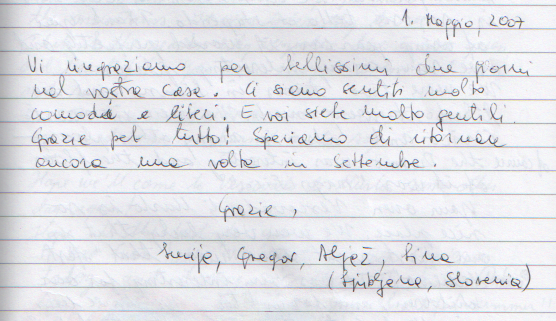 1. Maggio, 2007
Vi ringraziamo per bellissimi due giorni
nel vostra case. Ci siamo sentiti molto
comodi e liberi. E voi siete molto gentili.
Grazie per tutto! Speriamo di ritornare
ancora una volta in settembre.
Grazie,
Gregor, Aljaž, Lina
(Ljubljana, Slovenia)